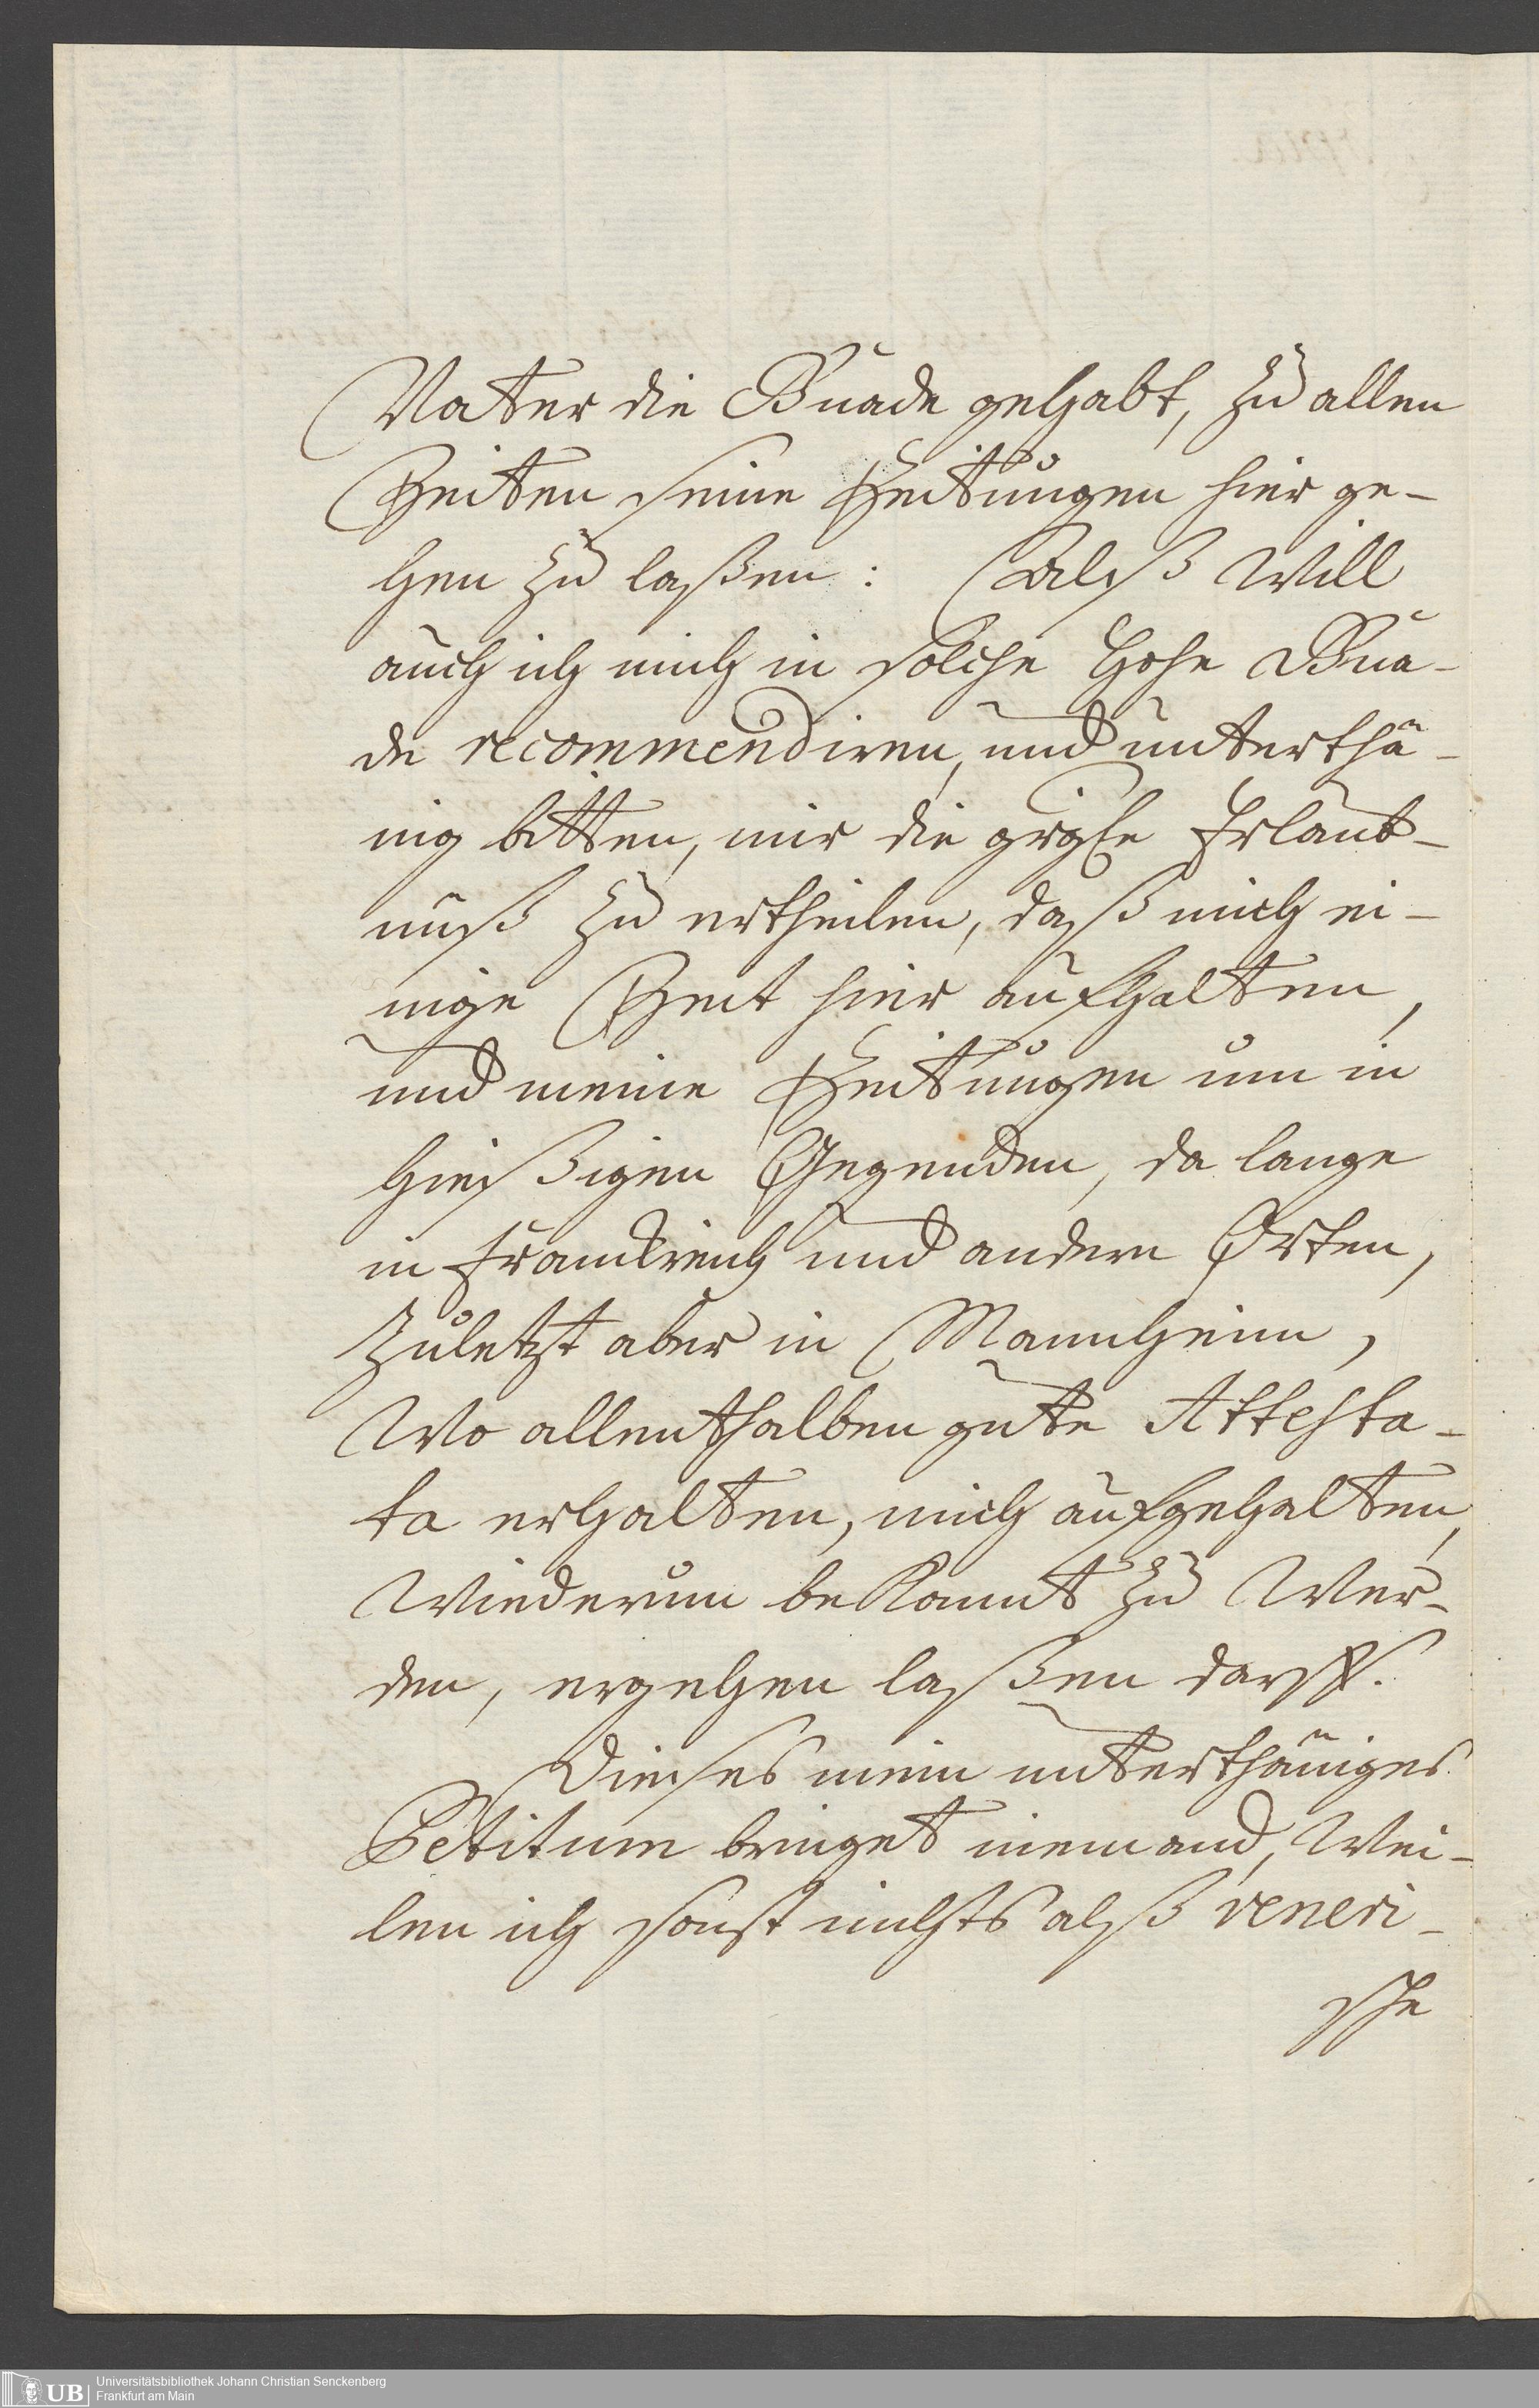 Vater die Gnade gehabt, zu allen
Zeiten seine Zeitungen hier ge-
hen zu laßen: Alß will
auch ich mich in solche hohe Gna-
de recommendiren, und unterthä-
nig bitten, mir die grgste Erlaub-
nuß zu ertheilen, daß mich ei-
nige Zeit hier aufhalten,
und meine Zeitungen um in
hießigen Gegenden, da lange
in Franckreich und andern Orten,
zuletzt aber in Mannheim,
wo allenthalben gute Attesta-
ta erhalten, mich aufgehalten,
wiederum bekannt zu wer-
den, ergehen laßen darff.
Dieses mein unterthäniges
Petitum bringet niemand, wei-
len ich sonst nichts alß veneri-
sche
Universitätsbibliothek Johann Christian Senckenberg
Frankfurt am Main
UB